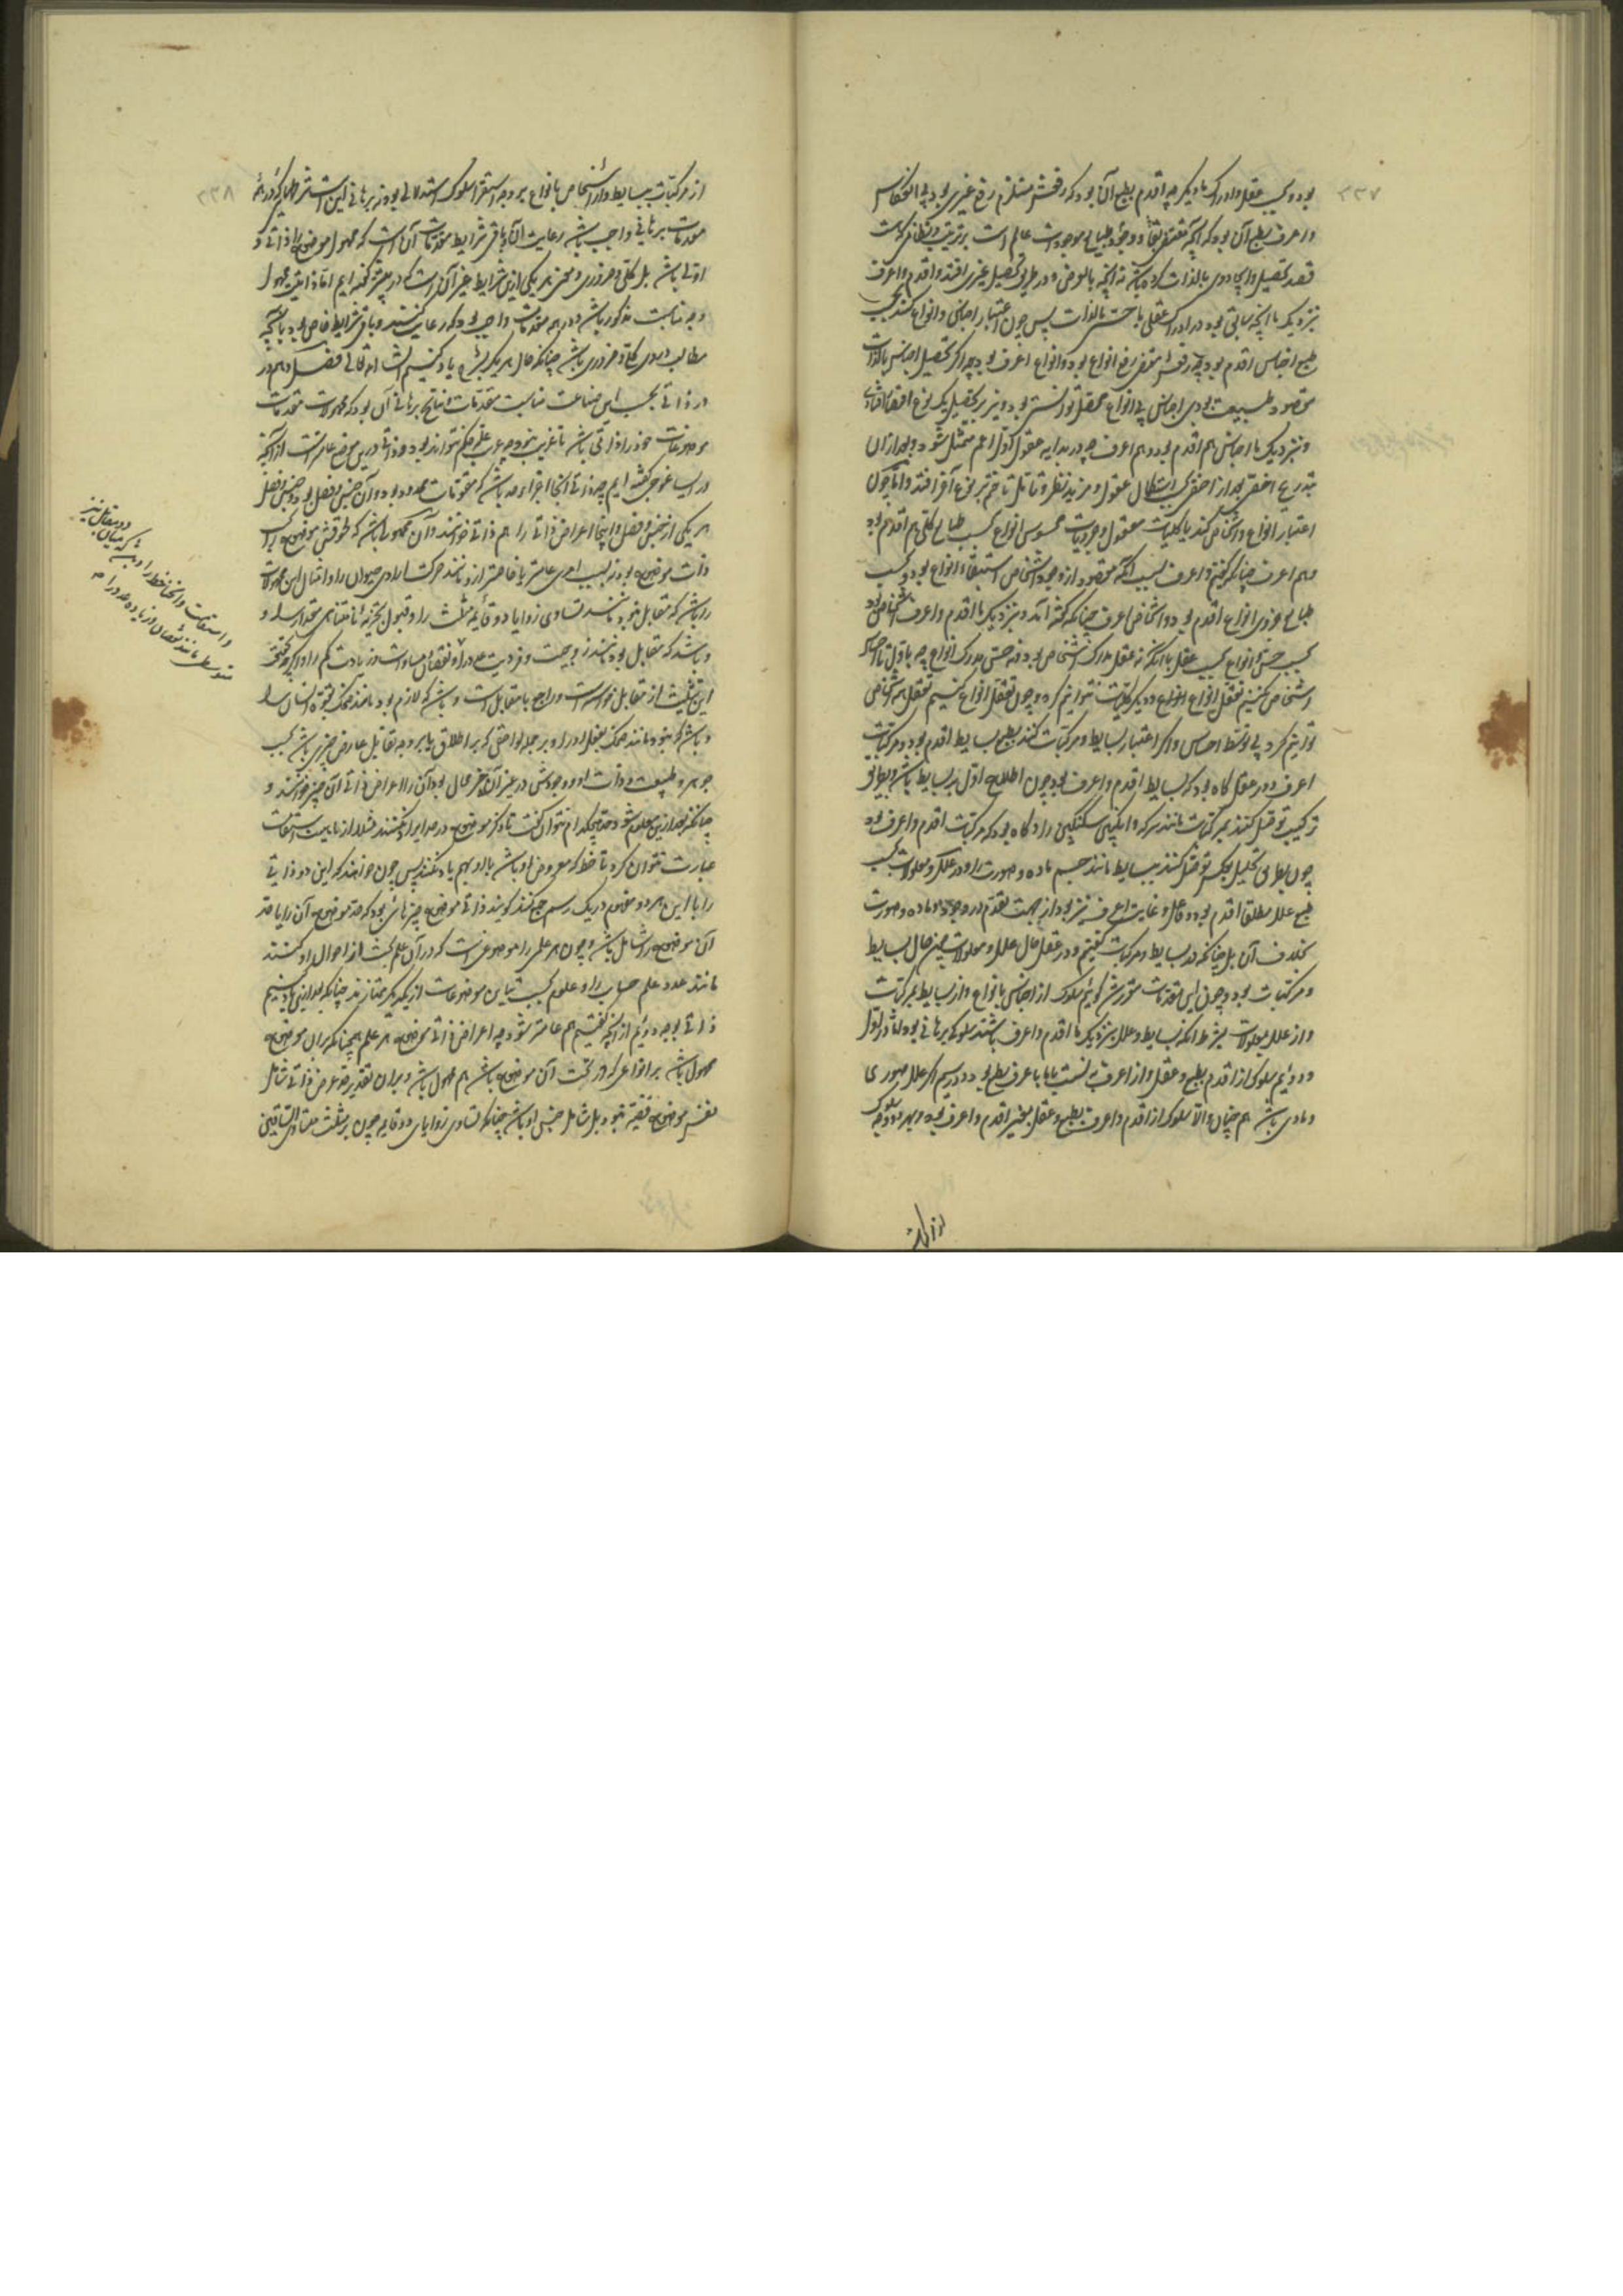 ۲۳۷
بود و بحسب عقل و ادراک ما دیگر چه اقدم بطبع آن بود که رفعش مستلزم رفع غیری بود بی انعکاس
و اعرف بطبع آن بود که آنچه مقتضی بقا و وجود طبایع موجودات عالم است بر ترتیب و نظامی که هست
قصد تحصیل و ایجاد وی بالذات کرده باشد نه آنچه بالعرض و در طریق تحصیل غیری افتد و اقدم و اعرف
بنزدیک ما آنچه سابق بود در ادراک عقلی یا حسی بالذات پس چون اعتبار اجناس و انواع کنند بحسب
طبع اجناس اقدم بود چه رفعش مقتضی رفع انواع بود و انواع اعرف بود چه اگر تحصیل اجناس بالذات
مقصود طبیعت بودی اجناس بی انواع محصل توانستی بود و نیز بر تحصیل یک نوع اقتصار افتادی
و بنزدیک ما اجناس هم اقدم بود و هم اعرف چه در بدایه عقول اول اعم متمثل شود و بعد از آن
بتدریج اخص بعد از اخص بحسب استکمال عقول و مزید نظر و تامل تا ختم بر نوع آخر افتد و اما چون
اعتبار انواع و اشخاص کنند یا کلیات معقول و جزویات محسوس انواع بحسب طبایع کلی هم اقدم بود
و هم اعرف چنانکه گفتیم و اعرف بسبب آنکه مقصود از وجود اشخاص استبقاء انواع بود و بحسب
طبایع جزوی انواع اقدم بود و اشخاص اعرف چنانکه گفته آمد و بنزدیک ما اقدم و اعرف اشخاص بود
بحسب حس و انواع بحسب عقل با آنکه نه عقل مدرک اشخاص بود و نه حس مدرک انواع چه باول تا احساس
اشخاص نکنیم تعقل انواع و دیگر کلیات نتوانیم کرد و چون تعقل انواع کنیم تعقل همه اشخاص
توانیم کرد بی توسط احساس و اگر اعتبار بسایط و مرکبات کنند بطبع بسایط اقدم بود و مرکبات
اعرف و در عقل گاه بود که بسایط اقدم و اعرف بود چون اطلاع اول بر بسایط باشد و بطریق
ترکیب توصل کنند بمرکبات مانند سرکه و انگبین سکنگبین را و گاه بود که مرکبات اقدم و اعرف بود
چون بطریق تحلیل بعکس توصل کنند ببسایط مانند جسم ماده و صورت را و در علل و معلولات بحسب
طبع علل مطلقا اقدم بود و فاعل و غایت اعرف نیز بود از جهت تقدم در وجود و ماده و صورت
بخلاف آن بل چنانکه در بسایط و مرکبات گفتیم و در عقل حال علل و معلولات همین حال بسایط
و مرکبات بود و چون این مقدمات مقرر شد گوئیم سلوک از اجناس بانواع و از بسایط بمرکبات
و از علل بمعلولات بشرط آنکه بسایط و علل بنزدیک ما اقدم و اعرف باشند سلوکی برهانی بود اما در اول
و دوئیم سلوکی از اقدم بطبع و عقل و از اعرف به نسبت با ما با عرف بطبع بود و در سیم اگر علل صوری
و مادی باشد هم چنان و الا سلوک از اقدم و اعرف بطبع و عقل بغیر اقدم و اعرف بود و بهر دو وجه سلوک
از مرکبات
۲۳۸
از مرکبات ببسایط و از اشخاص بانواع بر وجه استقرا سلوک استدلالی بود نه برهانی این است شرایطی که در همه
مقدمات برهانی واجب باشد رعایت آن و باقی شرایط مقدمات آن است که محمول موضوع را ذاتی و
اولی باشد بل کلی و ضروری و معنی هر یکی ازین شرایط غیر آن است که در پیشتر گفته ایم اما ذاتیت محمول
وجه مناسبت مذکور باشد و در همه مقدمات واجب بود که رعایت کنند و باقی شرایط خاص بود بآنچه
مطالب در وی کلی و ضروری باشد چنانکه حال هر یک بشرح یاد کنیم انشاء الله تعالی فصل دهم در
در ذاتی بحسب این صناعت مناسبت مقدمات و نتایج برهانی آن بود که محمولات مقدمات
موضوعات خود را ذاتی باشد تا غریب نبود چه غریب علت حکم نتواند بود و ذاتی درین موضع عامتر است از آنچه
در ایساغوجی گفته ایم چه ذاتی آنجا اجزاء حد باشد که مقومات محدود بود و آن جنس و فصل بود و جنس فصل
هر یکی از جنس و فصل و اینجا اعراض ذاتی را هم ذاتی خوانند و آن محمولی باشد که لحوقش موضوع را بحسب
ذات موضوع بود نه بسبب امری عامتر یا خاصتر ازو مانند حرکت ارادی حیوان را و امثال این محمولات
را باشد که مقابل نبود مانند تساوی زوایا دو قایمه مثلث را و قبول تجزیه نامتناهی مقدار را و
و باشد که مقابل بود مانند زوجیت و فردیت عدد را و نقصان و مساوات و زیادت کم را و اگرچه تحقیق
این تثلیث از مقابل خواسته است و راجع با مقابل است و باشد که لازم بود مانند ضحک بقوة انسان را
و باشد که نبود مانند ضحک بفعل او را و بر جمله لواحقی که بر اطلاق یا بر وجه تقابل عارض چیزی باشد بحسب
جوهر و طبیعت و ذات او و وجودش در غیر آن چیز محال بود آن را اعراض ذاتی آن چیز خوانند و
چنانکه بعد ازین معلوم شود حد هیچکدام نتوان گفت تا ذکر موضوع در حد ایراد نکنند مثلا از ماهیت استقامت
عبارت نتوان کرد تا خط که معروض او باشد با او بهم یاد نکنند پس چون خواهند که این دو ذاتی
را با این هر دو مفهوم در یک رسم جمع کنند گویند ذاتی موضوع چیزهائی بود که حد موضوع آن را یا حد
آن موضوع را شامل باشد و چون هر علمی را موضوعی است که در آن علم بحث از احوال او کنند
مانند عدد علم حساب را و علوم بحسب تباین موضوعات از یکدیگر ممتازند چنانکه بعد ازین یاد کنیم
ذاتی بوجه دوئیم از آنچه گفتیم هم عامتر شود چه اعراض ذاتی موضوع هر علم همچنانکه بران موضوع
محمول باشد بر انواعی که در تحت آن موضوع باشد هم محمول باشد و بران تقدیر حد عرض ذاتی شامل
نفس موضوع قضیه نبود بل شامل جنس او باشد چنانکه تساوی زوایای دو قایمه چون بر مثلث متساوی الساقین
و استقامت و انحنا خط را و باشد که میان دو مقابل نیز
متوسطی مانند نقصان از زیاده عدد را